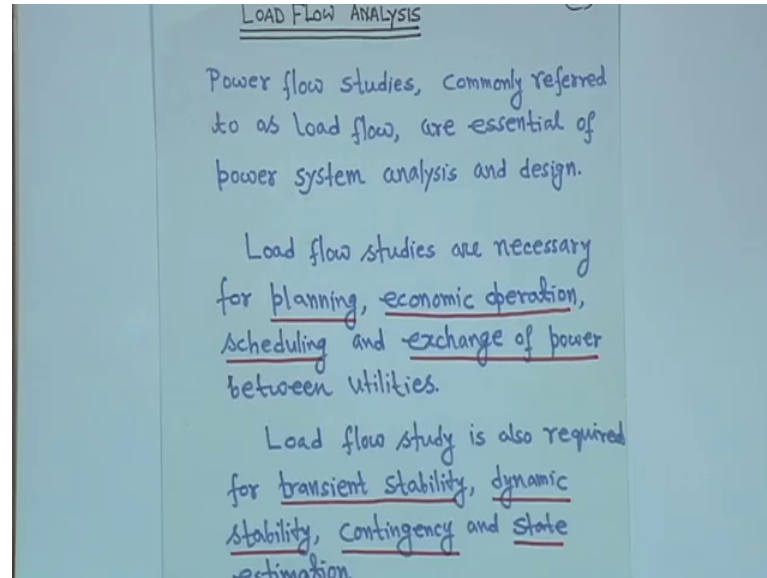 LOAD FLOW ANALYSIS
Power flow studies, commonly referred
to as load flow, are essential of
power system analysis and design.
Load flow studies are necessary
for planning, economic operation,
scheduling and exchange of power
between utilities.
Load flow study is also required
for transient stability, dynamic
stability, contingency and state
estimation